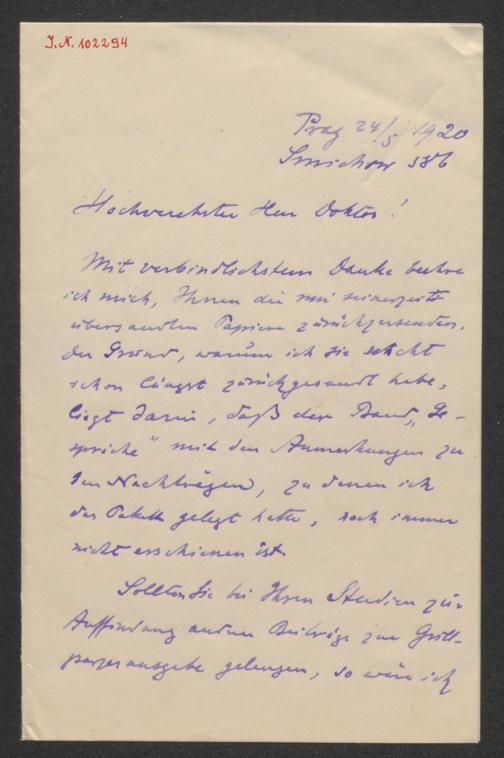 J.N. 102294
Prag 24/5 1920
Smichow 586
Hochverehrter Herr Doktor!
Mit verbindlichstem Danke beehre
ich mich, Ihnen die mir seinerzeit
übersandten Papiere zurückzusenden.
Der Grund, warum ich sie nicht
schon längst zurückgesandt habe,
liegt darin, daß der Band „Ge-
spräche" mit den Anmerkungen zu
den Nachträgen, zu denen ich
das Paket gelegt hatte, noch immer
nicht erschienen ist.
Sollten Sie bei Ihren Studien zur
Auffindung andrer Beiträge zur Grill-
parzerausgabe gelangen, so wäre ich